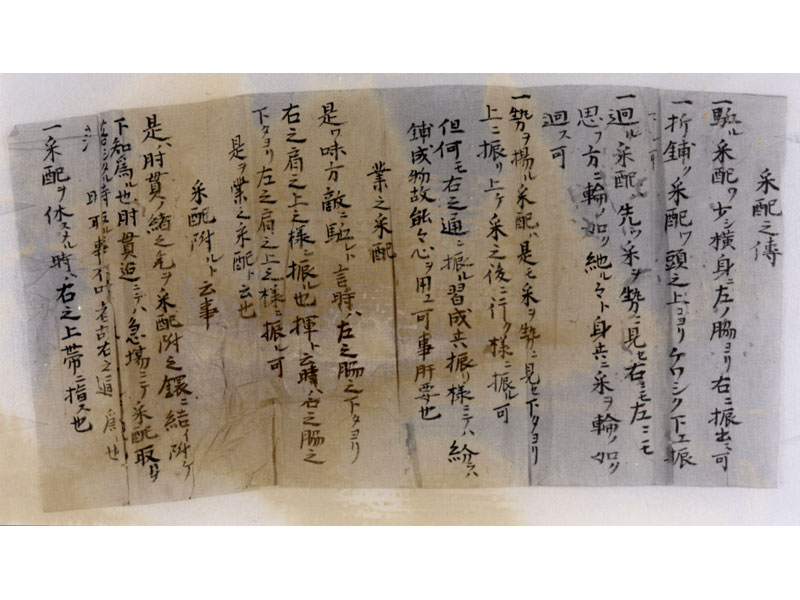 采配之傳
一駈ル采配ワ少シ横身ニ左ノ脇ヨリ右ニ振出ス可
一折鋪ク采配ワ頭之上ヨリケワシク下エ振
下ス可
一廻ル采配ハ先ツ采ヲ勢ニ見セ右ニモ左ニモ
思フ方ニ輪ノ如リ廻ルマト身共ニ采ヲ輪ノ如リ
廻ス可
一勢ヲ揚ル采配ハ是モ采ヲ勢ニ見セ下タヨリ
上ニ振リ上ケ采之後ニ行ク様ニ振ル可
但何モ右之通ニ振ル習成共振リ様ニテハ紛ラハ
鋪成物故能々心ヲ用ユ可事肝要也
業之采配
是ワ味方敵ニ駈レト言時ハ左之脇之下タヨリ
右之肩之上之様ニ振ル也揮ト云時ハ右之脇之
下タヨリ左之肩之上之様ニ振ル可
是ヲ業之采配ト云也
采配附ルト云事
是ハ肘貫ノ緒之毛ヲ采配附之鐶ニ結イ附ケ
下知為ル也肘貫迫ニテハ急場ニテ采配取
時取ル事右之通
一采配ヲ休スル時ハ右之上帯ニ指ス也